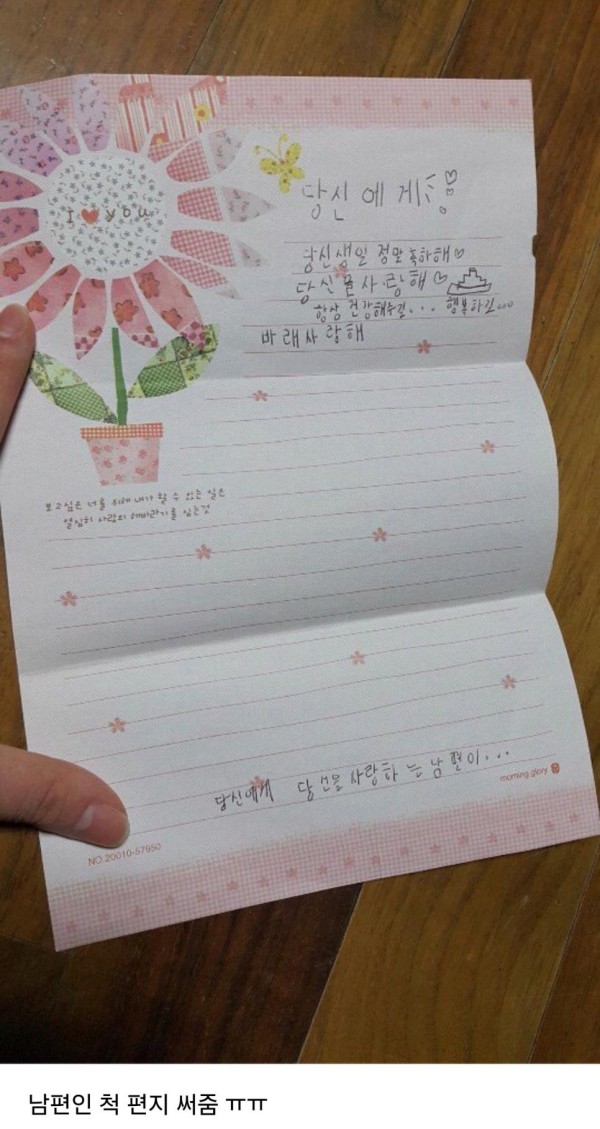 I ♥ you
당신에게
당신생일 정말축하해♡
당신을사랑해♡
항상 건강해주길... 행복하길...
바래사랑해
보고싶은 너를 위해 내가 할 수 있는 일은
열심히 사랑의 해바라기를 심는것
당신에게 당신을 사랑하는남편이...
morning glory
NO.20010-57950
남편인 척 편지 써줌 ㅠㅠ